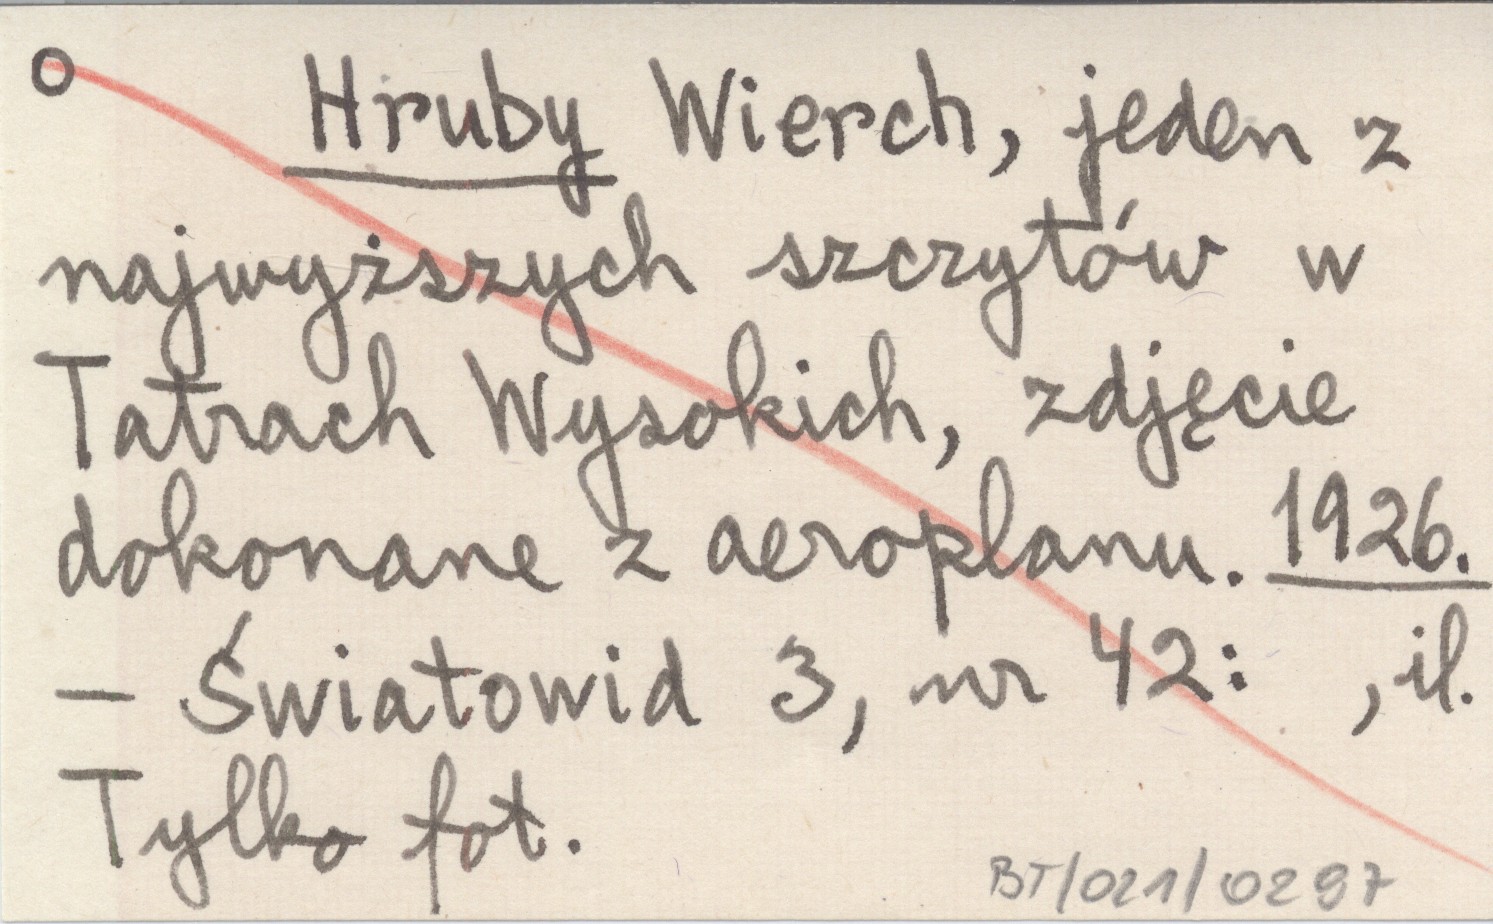 O Hruby Wierch, jeden z
najwyższych szczytów w
Tatrach Wysokich, zdjęcie
dokonane z aeroplanu. 1926.
– Światowid 3, nr 42: , il.
Tylko fot.
BT/021/0297